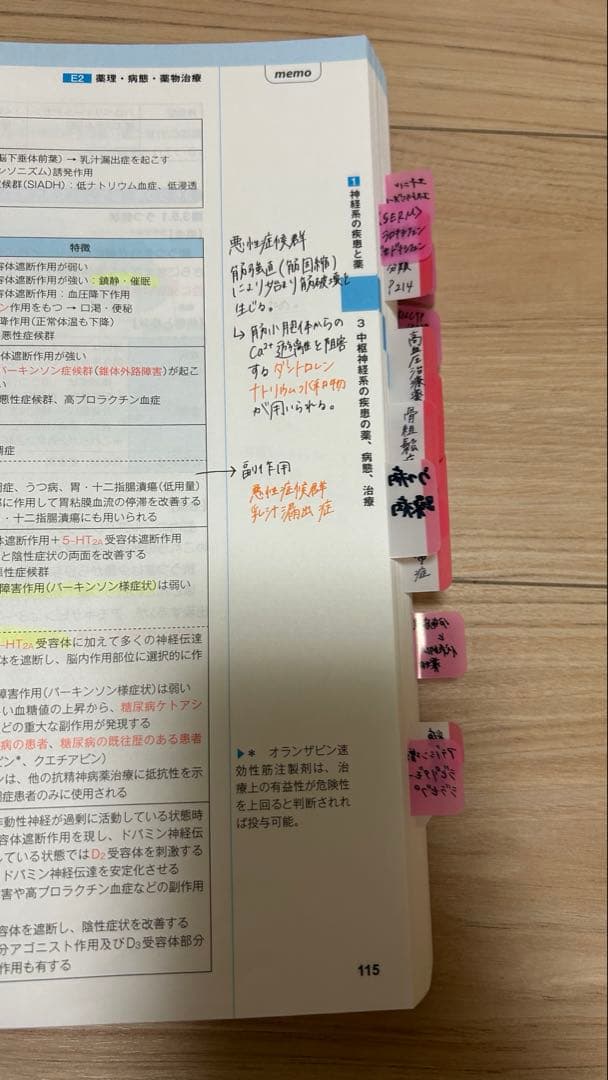 E2 薬理・病態・薬物治療
memo
脳下垂体前葉) → 乳汁漏出症を起こす
ンソニズム) 誘発作用
候群(SIADH)：低ナトリウム血症、低浸透
特徴
容体遮断作用が弱い
容体遮断作用が強い：鎮静・催眠
容体遮断作用：血圧降下作用
ン作用をもつ → 口渇・便秘
降作用(正常体温も下降)
悪性症候群
体遮断作用が強い
パーキンソン症候群(錐体外路障害)が起こ
い
悪性症候群、高プロラクチン血症
調症
調症、うつ病、胃・十二指腸潰瘍(低用量)
部に作用して胃粘膜血流の停滞を改善する
・十二指腸潰瘍にも用いられる
体遮断作用＋5-HT2A受容体遮断作用
と陰性症状の両面を改善する
悪性症候群
障害作用(パーキンソン様症状)は弱い
-HT2A受容体に加えて多くの神経伝達
体を遮断し、脳内作用部位に選択的に作
障害作用(パーキンソン様症状)は弱い
い血糖値の上昇から、糖尿病ケトアシ
どの重大な副作用が発現する
病の患者、糖尿病の既往歴のある患者
ピン*、クエチアピン)
ンは、他の抗精神病薬治療に抵抗性を示
調症患者のみに使用される
作動性神経が過剰に活動している状態時
容体遮断作用を現し、ドパミン神経伝
している状態ではD2受容体を刺激する
ドパミン神経伝達を安定化させる
害や高プロラクチン血症などの副作用
容体を遮断し、陰性症状を改善する
分アゴニスト作用及びD3受容体部分
作用も有する
悪性症候群
筋強直(筋固縮)
により始まり筋破壊を
生じる。
↳ 筋小胞体からの
Ca²⁺遊離を阻害
する ダントロレン
ナトリウム水和物
が用いられる。
→ 副作用
悪性症候群
乳汁漏出症
▶* オランザピン速
効性筋注製剤は、治
療上の有益性が危険性
を上回ると判断されれ
ば投与可能。
1 神経系の疾患と薬
3 中枢神経系の疾患の薬、病態、治療
115
(SERM)
ラロキシフェン
分類
P214
高血圧治療薬
骨粗鬆
うつ病